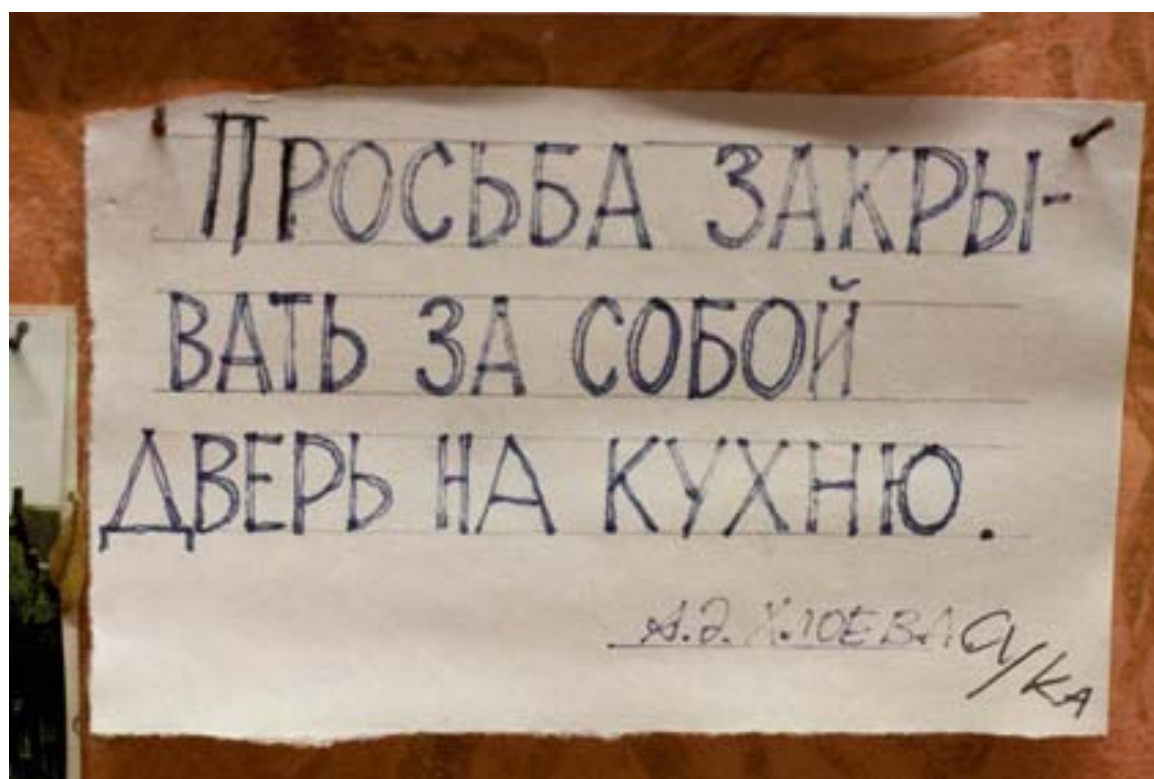 ПРОСЬБА ЗАКРЫ-
ВАТЬ ЗА СОБОЙ
ДВЕРЬ НА КУХНЮ.
А.Э. ХЛОЕВА СУКА